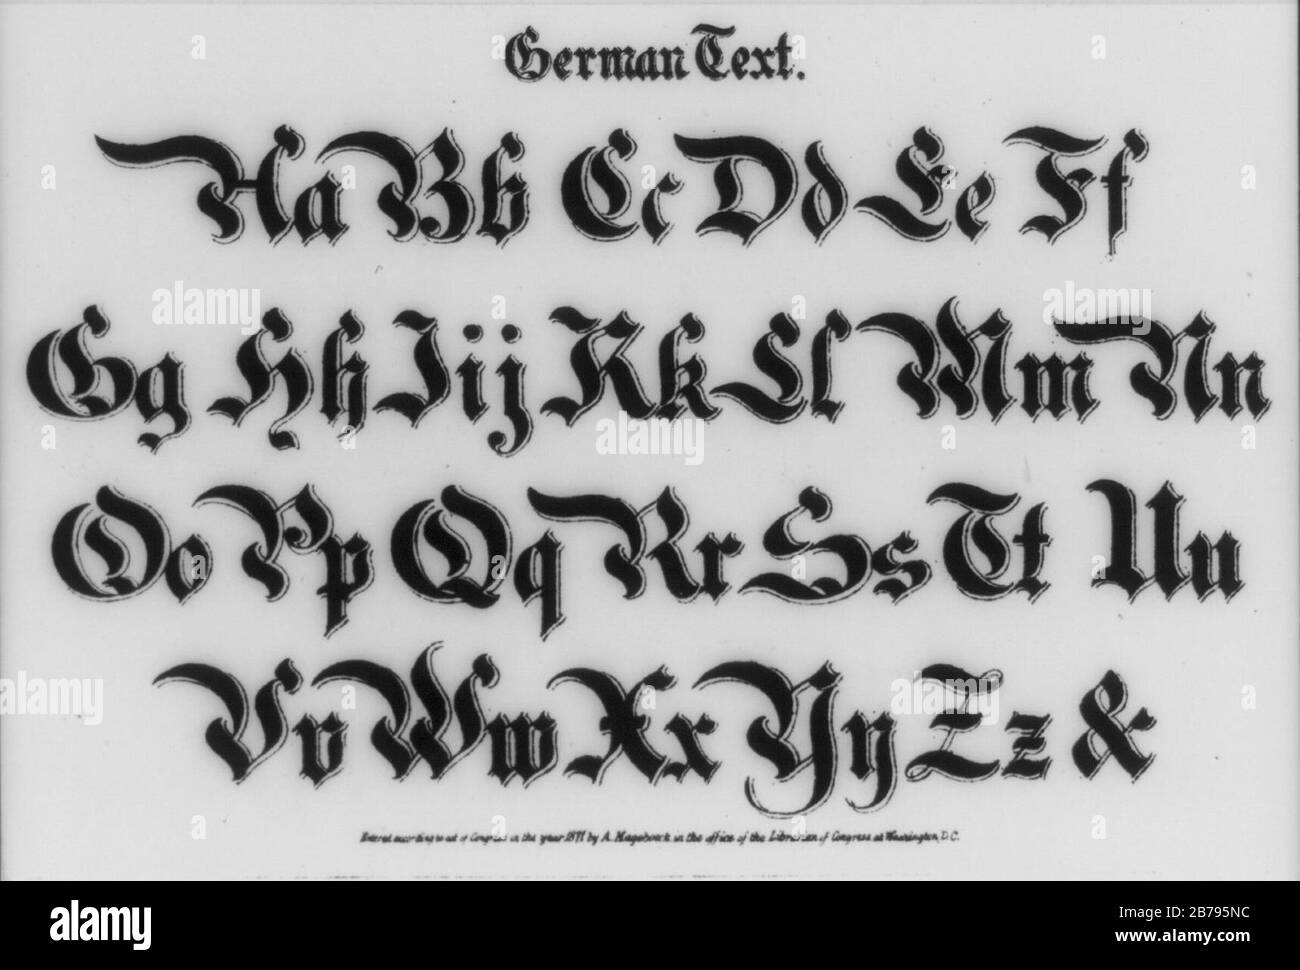 German Text.
Aa Bb Cc Dd Ee Ff
Gg Hh Iijj Kk Ll Mm Nn
Oo Pp Qq Rr Ss Tt Uu
Vv Ww Xx Yy Zz &
Entered according to act of Congress in the year 1871 by A. Hageboeck in the office of the Librarian of Congress at Washington, D.C.
alamy
Image ID: B795NC
www.alamy.com